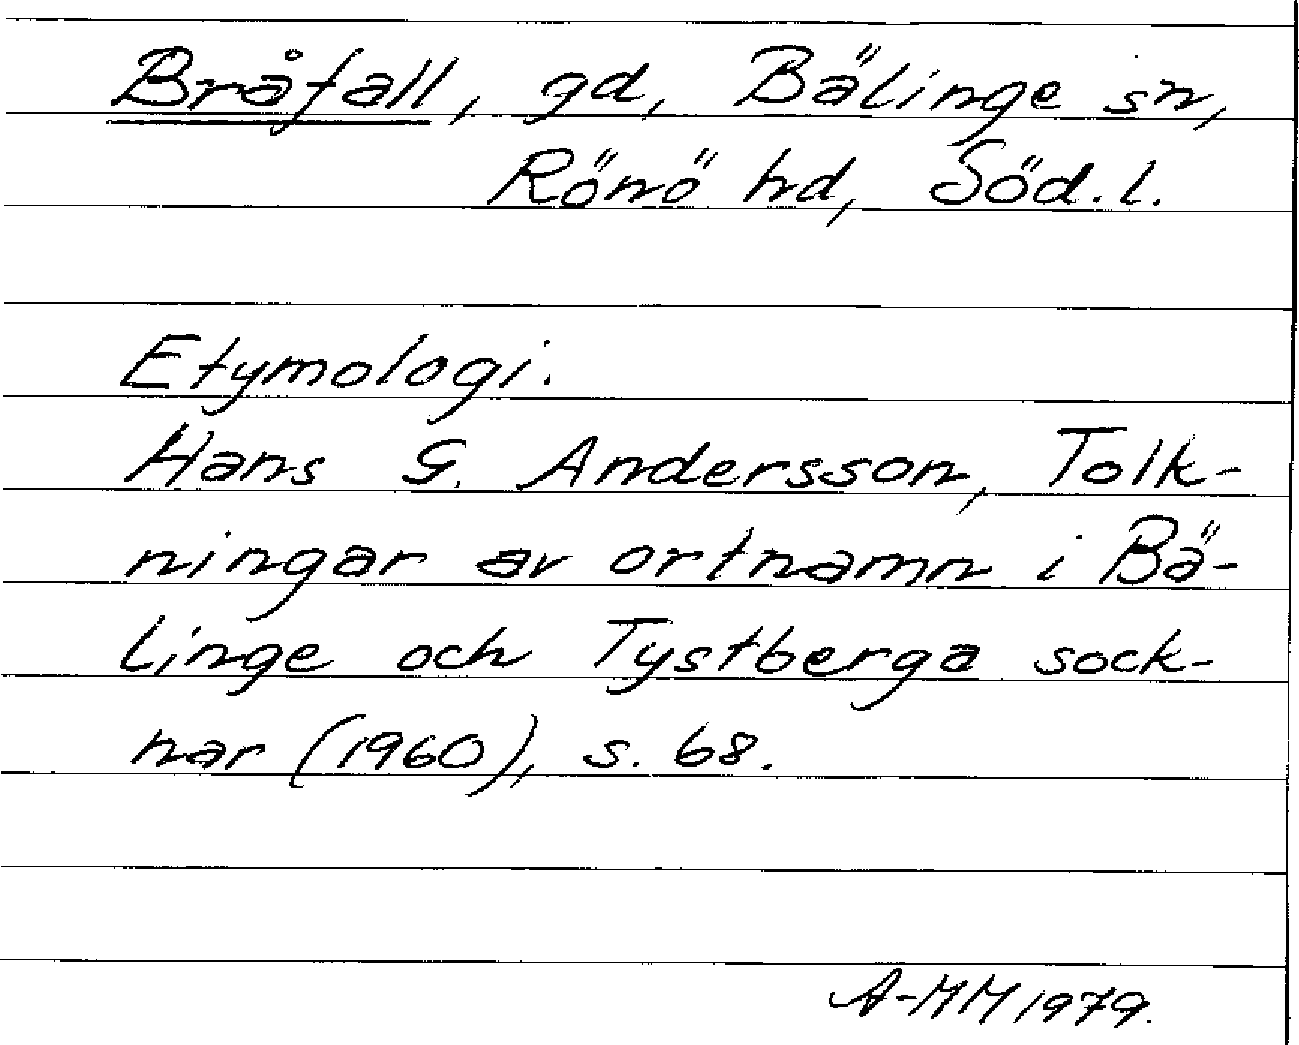 Bråfall, gd, Bälinge sn,
Rönö hd, Söd. l.
Etymologi.
Hans G. Andersson, Tolk-
ningar av ortnamn i Bä-
linge och Tystberga sock-
nar (1960), s. 68.
A-MM 1979.